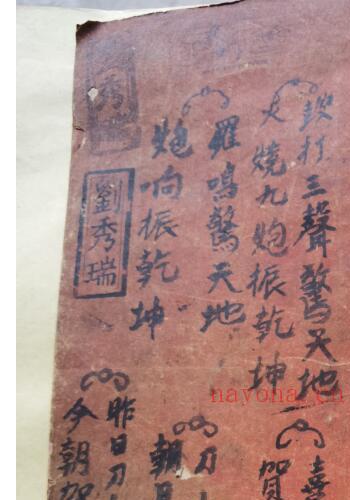 打三聲驚天地
火燒九炮振乾坤
羅鳴驚天地
炮响振乾坤
劉秀瑞
喜
賀
刀
朝
昨日刀
今朝賀
nayona.cn